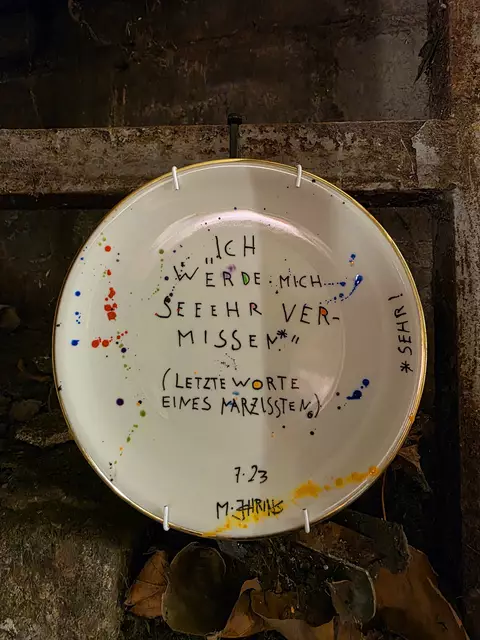 „ICH
WERDE MICH
SEEEHR VER-
MISSEN*“
(LETZTE WORTE
EINES NARZISSTEN)
* SEHR!
7.23
M. JHRING